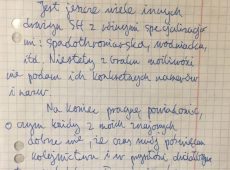 Jest jeszcze wiele innych
drużyn SH z różnymi specjalizacja-
mi: spadochroniarska, wodniacka,
itd. Niestety z braku możliwości
nie podam ich konkretnych numerów
i nazw.
Na koniec pragnę powiadomić,
o czym każdy z moich znajomych
dobrze wie, że czas mój poświęcam
kolejnictwu i w przyszłości